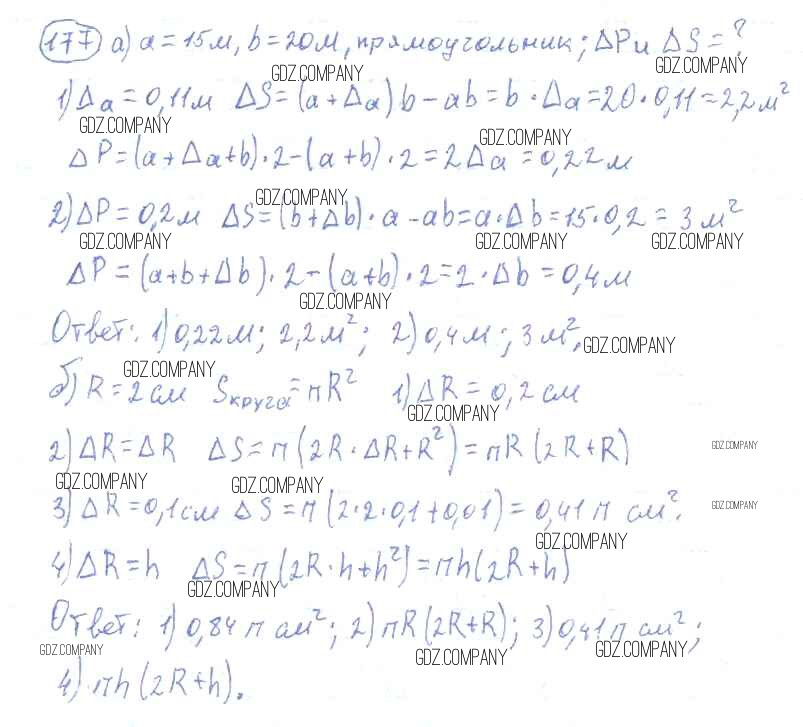 177 а) a = 15м, b = 20м, прямоугольник; ΔP и ΔS = ?
GDZ.COMPANY GDZ.COMPANY
1) Δa = 0,11м ΔS = (a + Δa) b - ab = b · Δa = 20 · 0,11 = 2,2 м²
GDZ.COMPANY GDZ.COMPANY
ΔP = (a + Δa + b) · 2 - (a + b) · 2 = 2Δa = 0,22 м
GDZ.COMPANY
2) ΔP = 0,2 м ΔS = (b + Δb) · a - ab = a · Δb = 15 · 0,2 = 3 м²
GDZ.COMPANY GDZ.COMPANY GDZ.COMPANY
ΔP = (a + b + Δb) · 2 - (a + b) · 2 = 2 · Δb = 0,4 м
GDZ.COMPANY
Ответ: 1) 0,22 м; 2,2 м²; 2) 0,4 м; 3 м².
GDZ.COMPANY
GDZ.COMPANY
б) R = 2 см Sкруга = πR² 1) ΔR = 0,2 см
GDZ.COMPANY
2) ΔR = ΔR ΔS = π (2R · ΔR + R²) = πR (2R + R)
GDZ.COMPANY
GDZ.COMPANY GDZ.COMPANY
3) ΔR = 0,1 см ΔS = π (2 · 2 · 0,1 + 0,01) = 0,41 π см².
GDZ.COMPANY
GDZ.COMPANY
4) ΔR = h ΔS = π (2R · h + h²) = πh (2R + h)
GDZ.COMPANY
Ответ: 1) 0,84 π см²; 2) πR (2R + R); 3) 0,41 π см²;
GDZ.COMPANY GDZ.COMPANY GDZ.COMPANY
4) πh (2R + h).